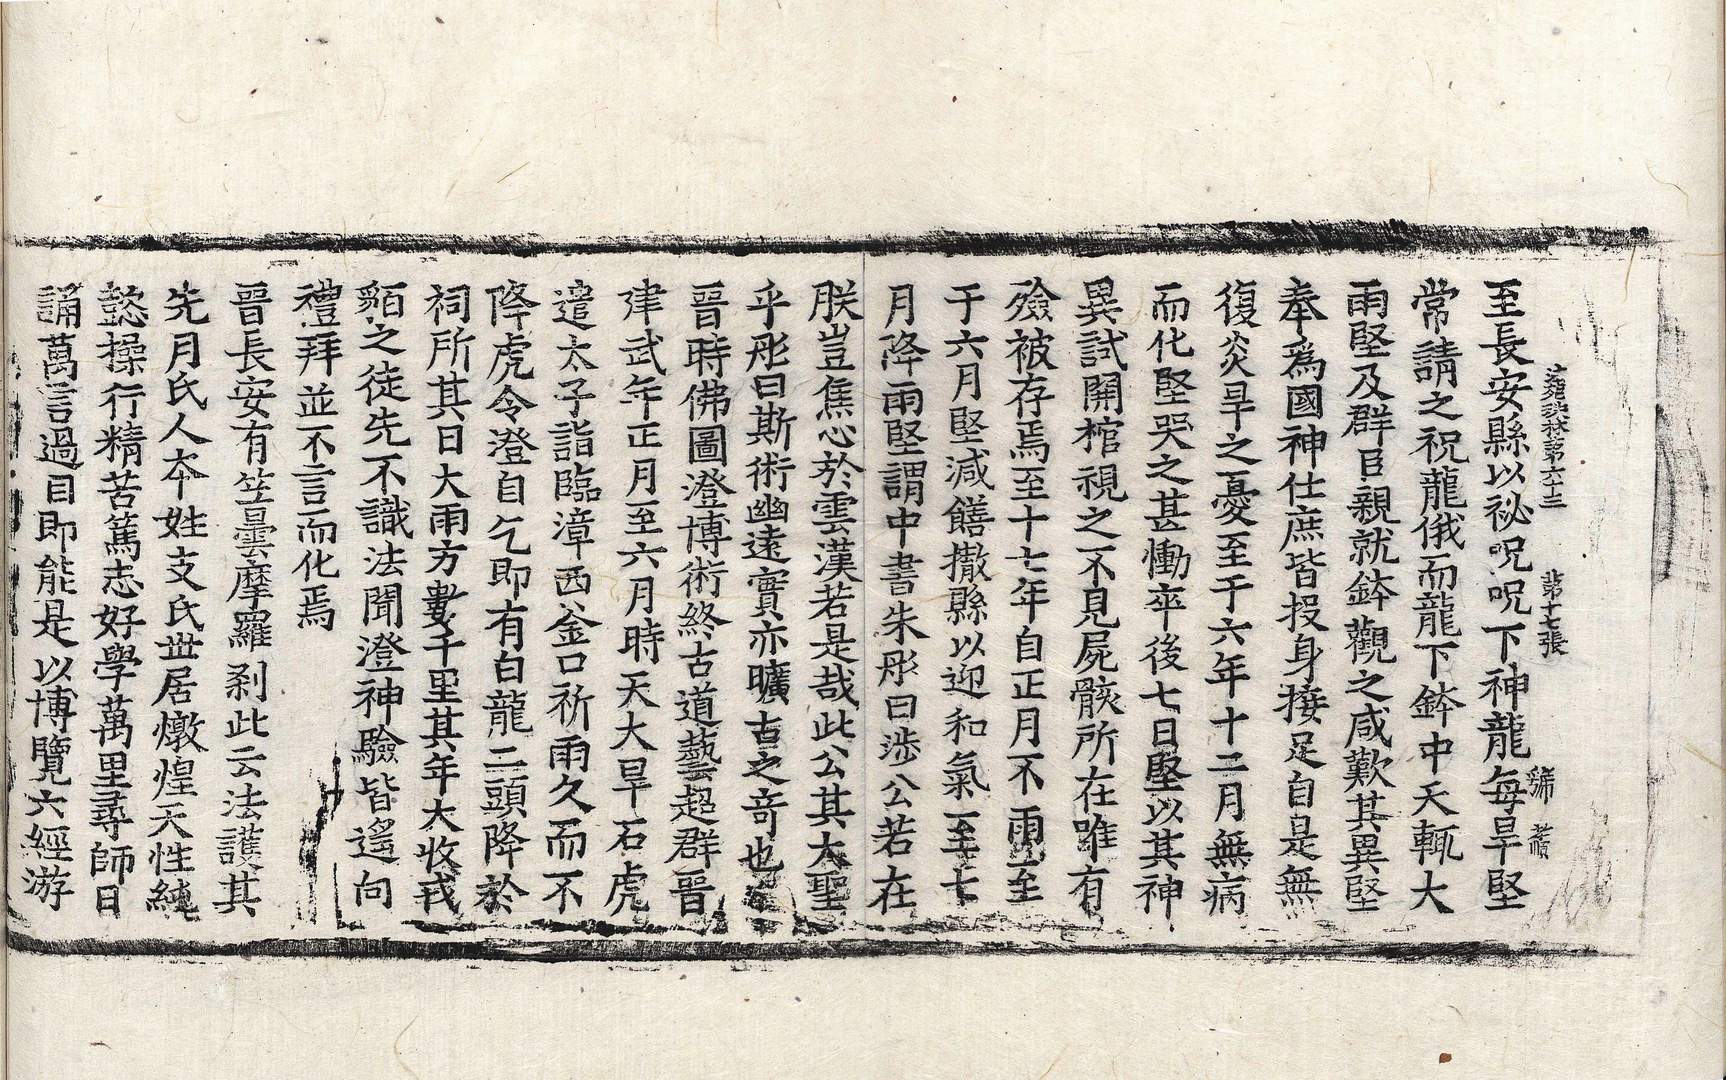 至長安縣以祕呪呪下神龍每旱堅
法苑珠林第六十三 第十七張 號
常請之祝龍俄而龍下鉢中天輒大
雨堅及群臣親就鉢觀之咸歎其異堅
奉爲國神仕庶皆投身接足自是無
復炎旱之憂至于六年十二月無病
而化堅哭之甚慟卒後七日堅以其神
異試開棺視之不見屍骸所在唯有
殮被存焉至十七年自正月不雨至
于六月堅減膳撤縣以迎和氣至七
月降雨堅謂中書朱彤曰涉公若在
朕豈焦心於雲漢若是哉此公其大聖
乎彤曰斯術幽遠實亦曠古之奇也
晉時佛圖澄博術終古道藝超群晉
建武年正月至六月時天大旱石虎
遣太子詣臨漳西釜口祈雨久而不
降虎令澄自乞即有白龍二頭降於
祠所其日大雨方數千里其年大收戎
貊之徒先不識法聞澄神驗皆遙向
禮拜並不言而化焉
晉長安有竺曇摩羅剎此云法護其
先月氏人夲姓支氏世居燉煌天性純
懿操行精苦篤志好學萬里尋師日
誦萬言過目即能是以博覽六經游